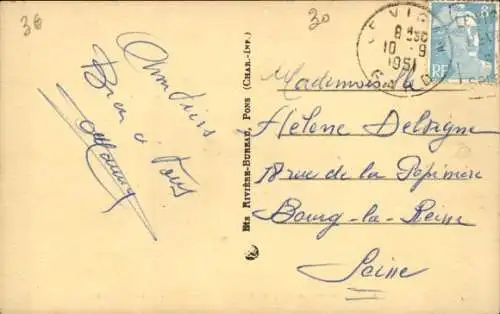 36
30
8F
RF
8 H 30
10 - 9
1951
Amitiés
Bien à
Tous
Mademoiselle
Hélène Delvigne
18 rue de la Pépinière
Bourg-la-Reine
Seine
Bté RIVIÈRE-BUREAU, PONS (CHAR.-INF.)